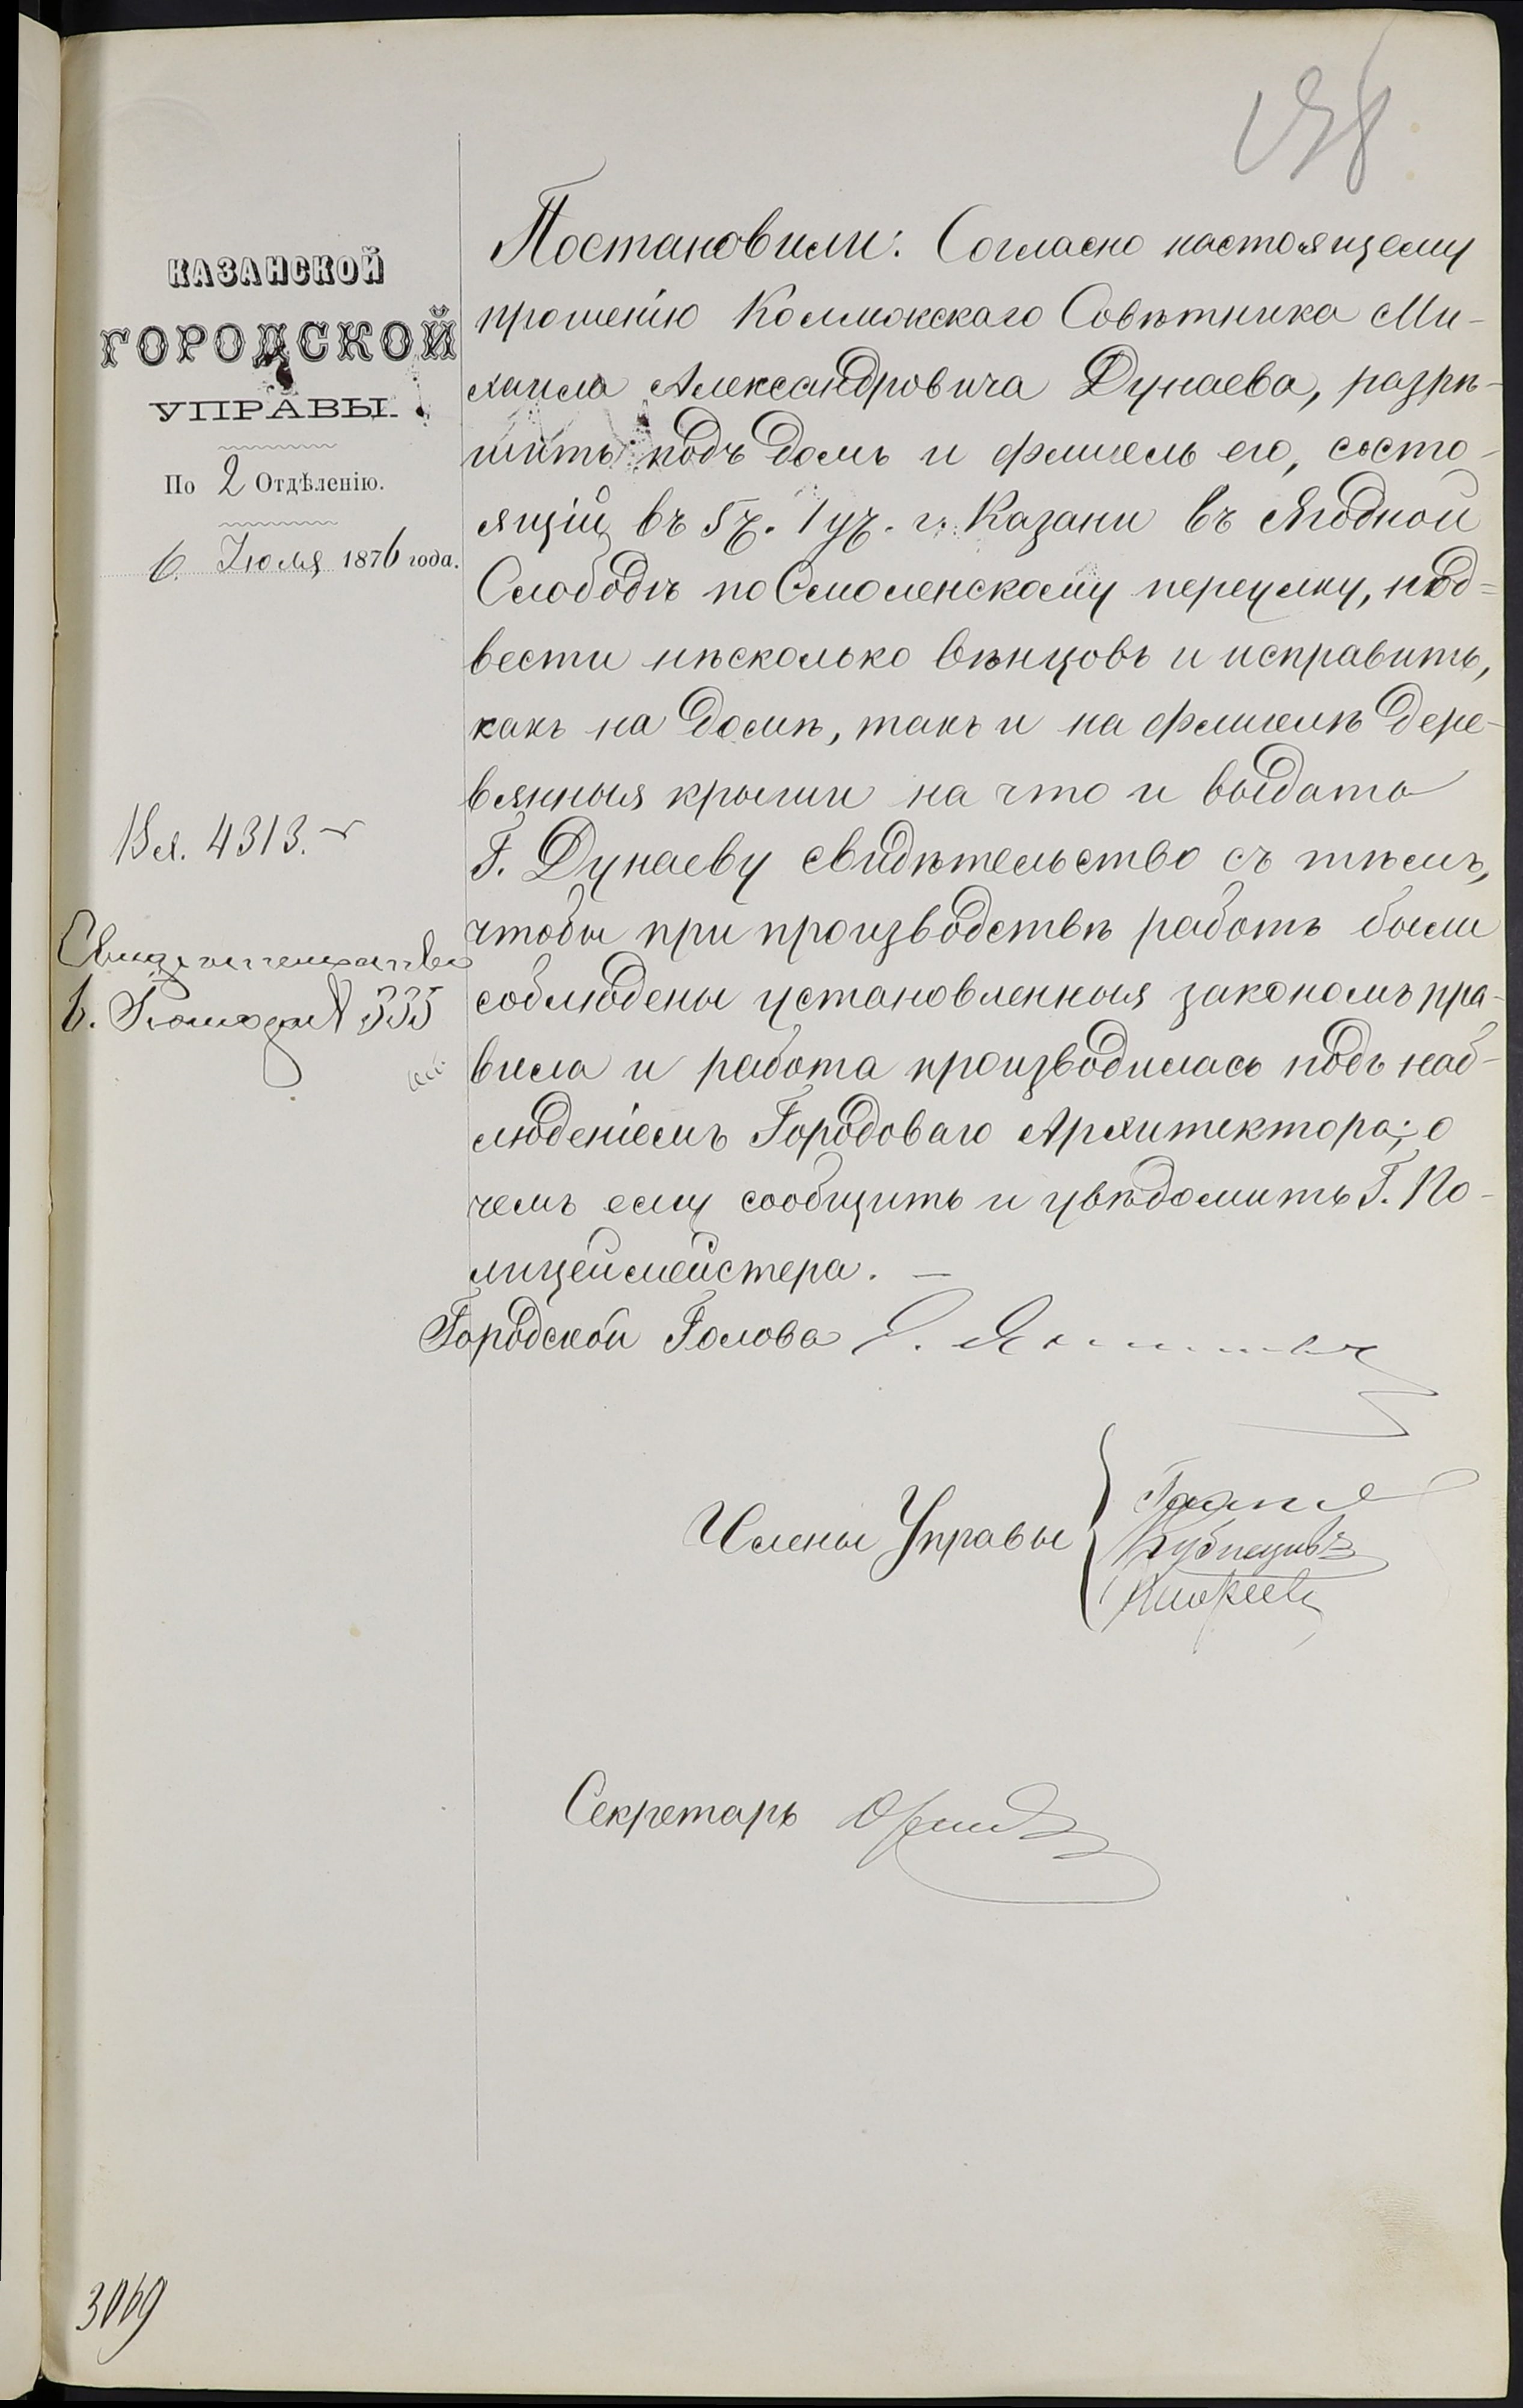 198
КАЗАНСКОЙ
ГОРОДСКОЙ
УПРАВЫ.
По 2 Отдѣленію.
6. Іюля 1876 года.
Вх. 4313.
Свидѣтельство
№ 335
3069
Постановили: Согласно настоящему
прошенію Коллежскаго Совѣтника Ми-
хаила Александровича Дунаева, разрѣ-
шить подъ домъ и флигель его, состо-
ящій въ 5 ч. 1 уч. г. Казани въ Ягодной
Слободѣ по Смоленскому переулку, под=
вести нѣсколько вѣнцовъ и исправить,
какъ на домѣ, такъ и на флигелѣ дере-
вянныя крыши на что и выдать
Г. Дунаеву свидѣтельство съ тѣмъ,
чтобы при производствѣ работъ были
соблюдены установленныя закономъ пра-
вила и работа производилась подъ наб-
людeніемъ Городоваго Архитектора; о
чемъ ему сообщить и увѣдомить Г. По-
лицеймейстера. —
Городской Голова
Члены Управы
Секретарь